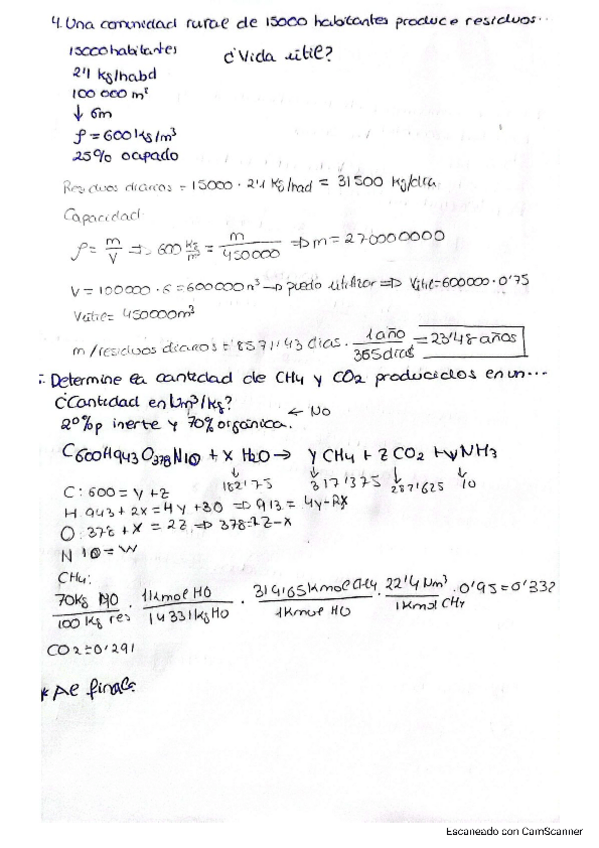 4. Una comunidad rural de 15000 habitantes produce residuos...
15000 habitantes ¿Vida útil?
2'1 kg/habd
100 000 m²
↓ 6m
ρ = 600 kg/m³
25% ocupado
Residuos diarios = 15000 · 2'1 kg/had = 31500 kg/día
Capacidad
ρ = m/V => 600 kg/m³ = m/450000 => m = 270000000
V = 100000 · 6 = 600000 m³ → puedo utilizar => Vútil = 600000 · 0'75
Vútil = 450000m³
m/residuos diarios = 8571'43 días · 1 año/365 días = 23'48 años
Determine la cantidad de CH4 y CO2 producidos en un...
¿Cantidad en Nm³/kg?
inerte y 70% orgánica. ← No
C600H943O378N10 + x H2O → y CH4 + z CO2 + w NH3
182'75 317'375 10
C: 600 = y + z
H 943 + 2x = 4y + 30 => 913 = 4y - 2x
O: 378 + x = 2z => 378 = 2z - x
N 10 = w
CH4:
70kg MO/100 kg res · 1 kmol HO/14331 kg HO · kmol CH4/1 kmol HO · 22'4 Nm³/1 kmol CH4 · 0'95 = 0'332
CO2 = 0'291
* Al final
Escaneado con CamScanner